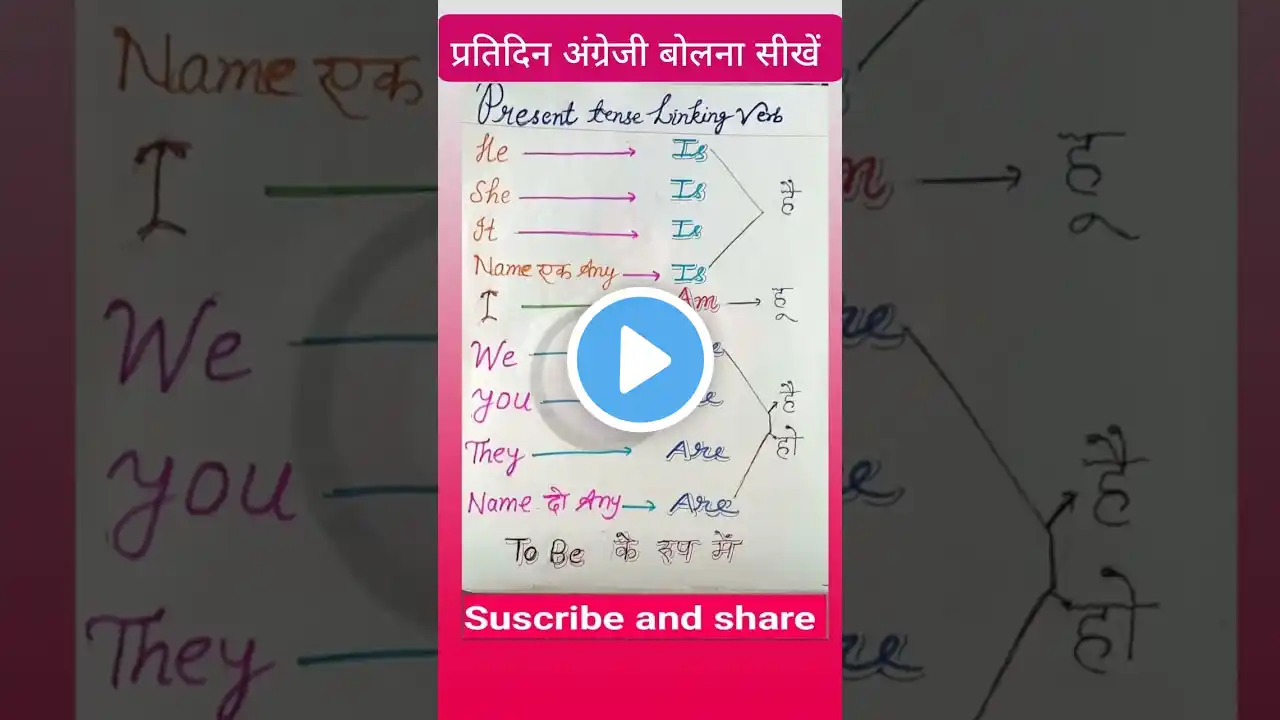 प्रतिदिन अंग्रेजी बोलना सीखें
Present tense Linking Verb
He Is
She Is है
It Is
Name एक Any Is
I Am हू
We
You है
They Are हो
Name दो Any Are
To Be के रूप में
Suscribe and share